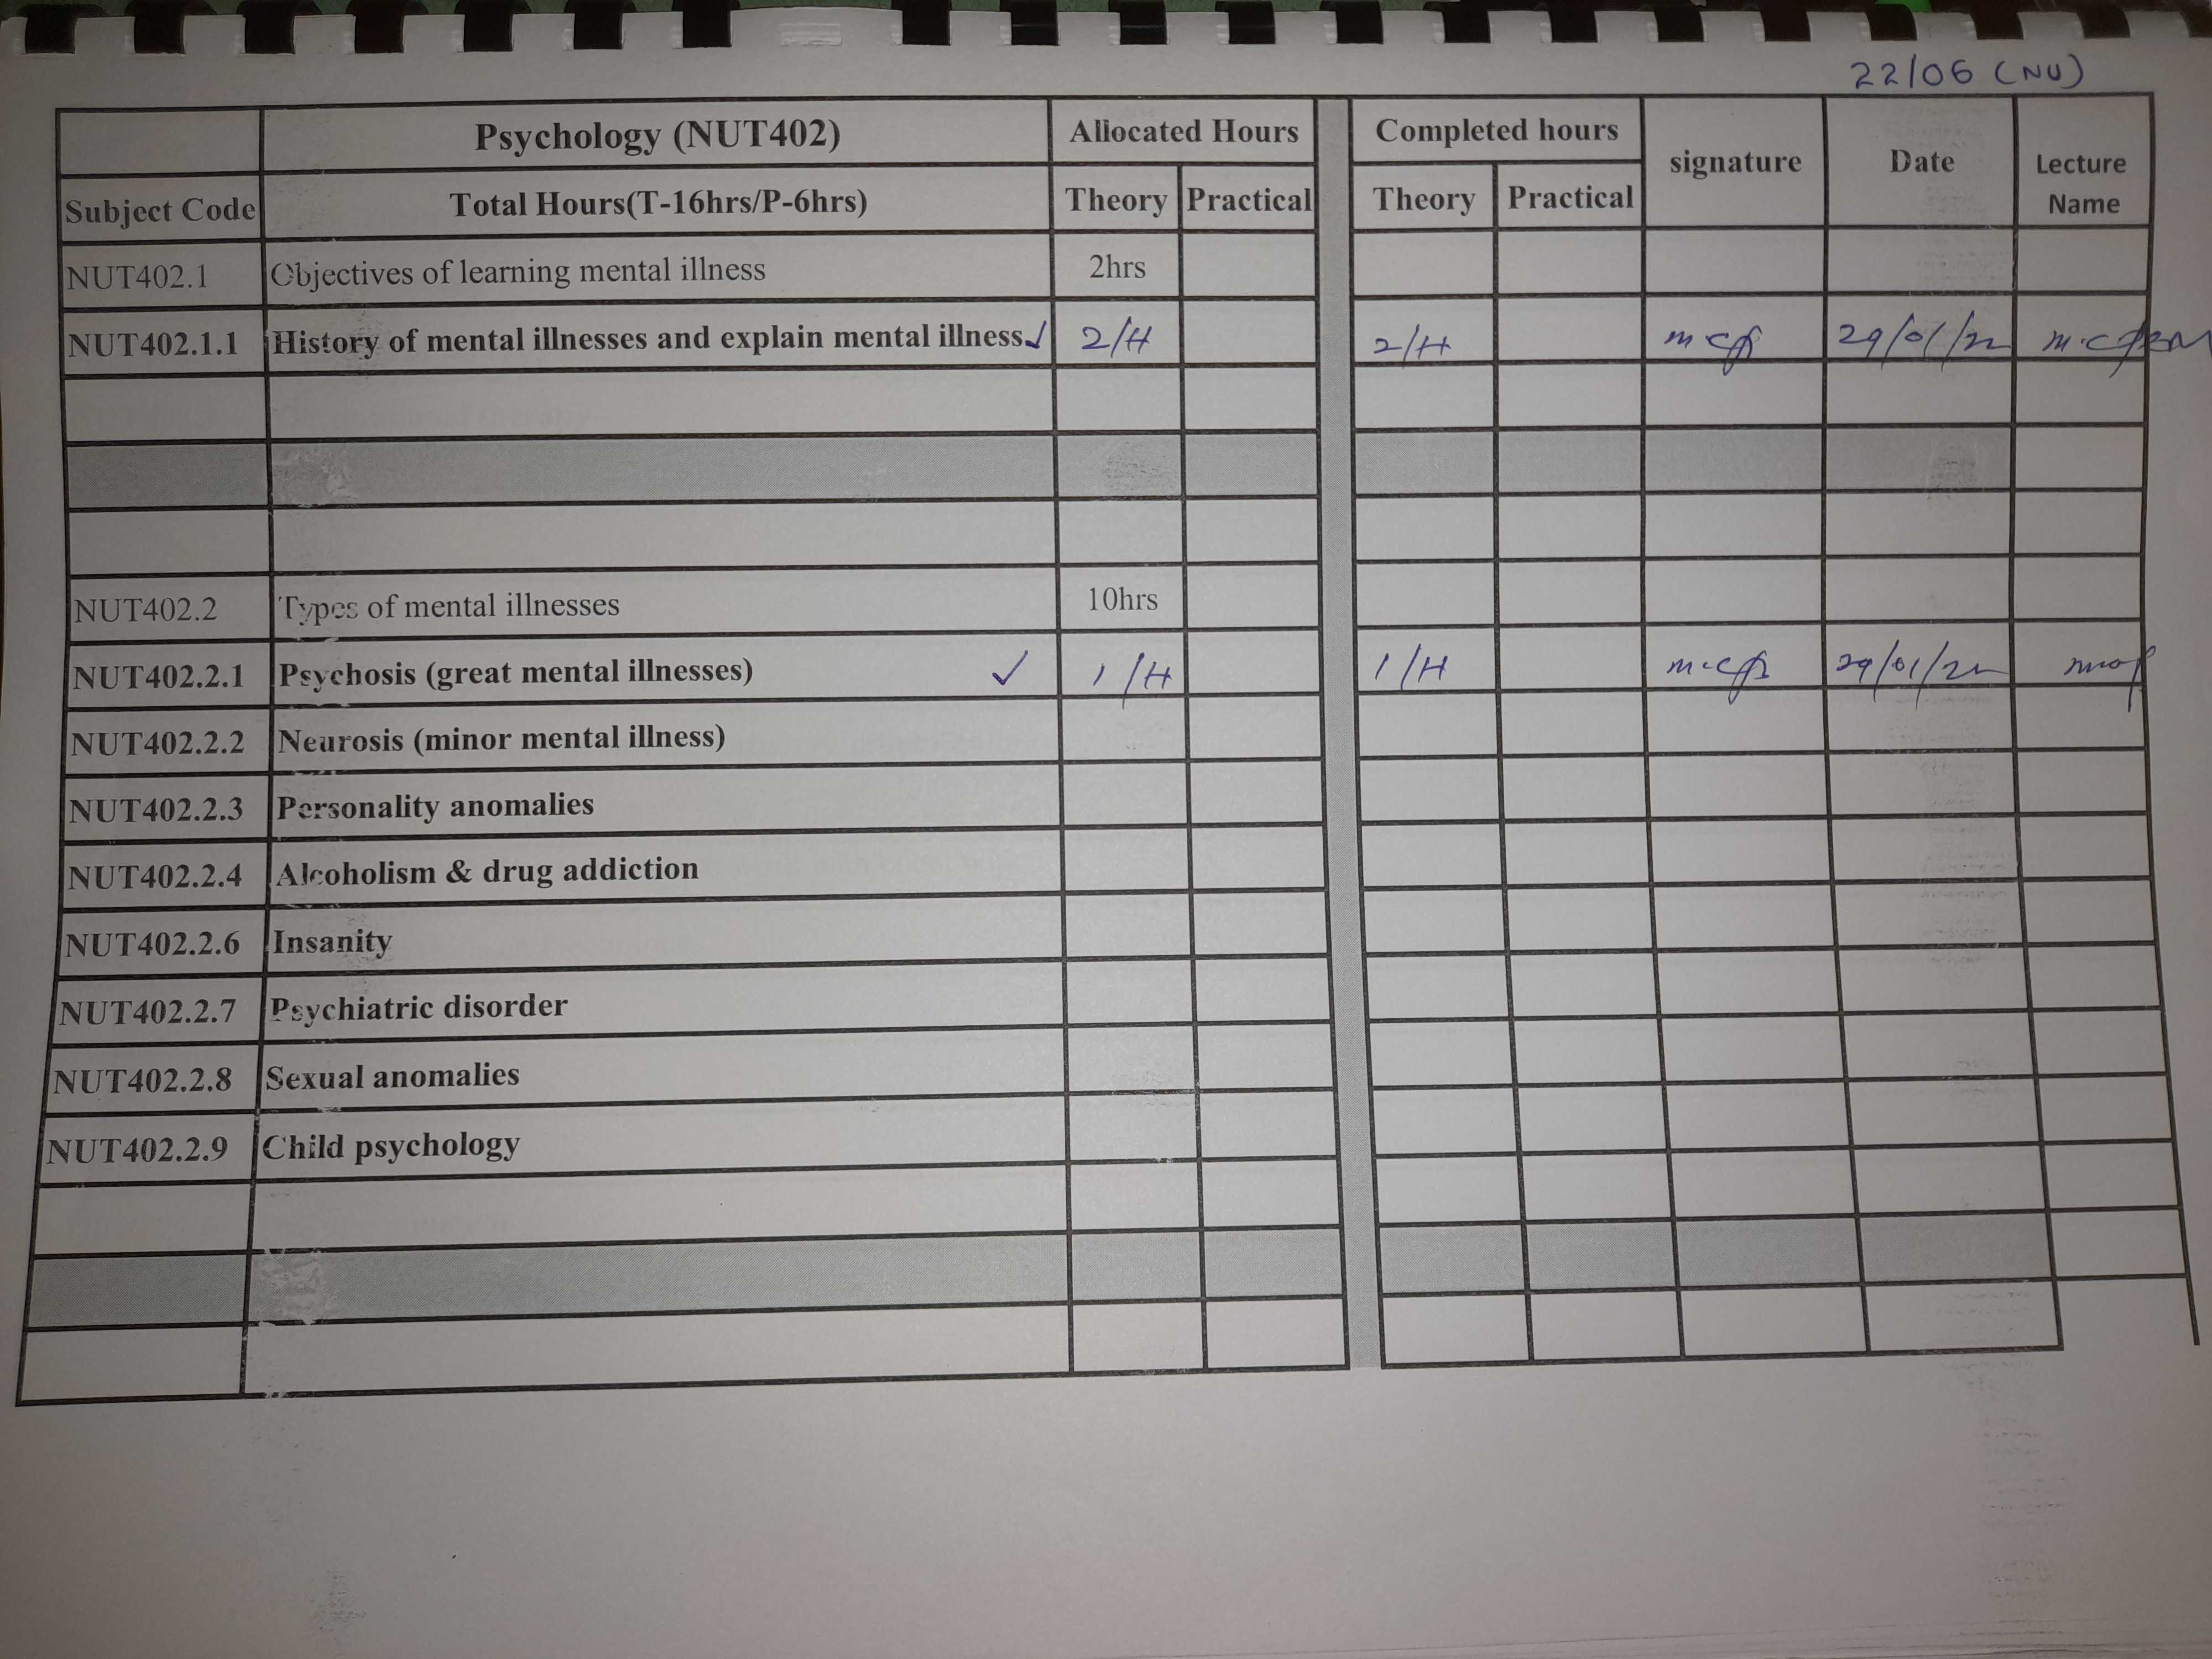 22/06 (NU)
Psychology (NUT402) Allocated Hours Completed hours signature Date Lecture Name
Subject Code Total Hours(T-16hrs/P-6hrs) Theory Practical Theory Practical
NUT402.1 Objectives of learning mental illness 2hrs
NUT402.1.1 History of mental illnesses and explain mental illness ✓ 2/H 2/H 29/01/22
NUT402.2 Types of mental illnesses 10hrs
NUT402.2.1 Psychosis (great mental illnesses) ✓ 1/H 1/H 29/01/22
NUT402.2.2 Neurosis (minor mental illness)
NUT402.2.3 Personality anomalies
NUT402.2.4 Alcoholism & drug addiction
NUT402.2.6 Insanity
NUT402.2.7 Psychiatric disorder
NUT402.2.8 Sexual anomalies
NUT402.2.9 Child psychology